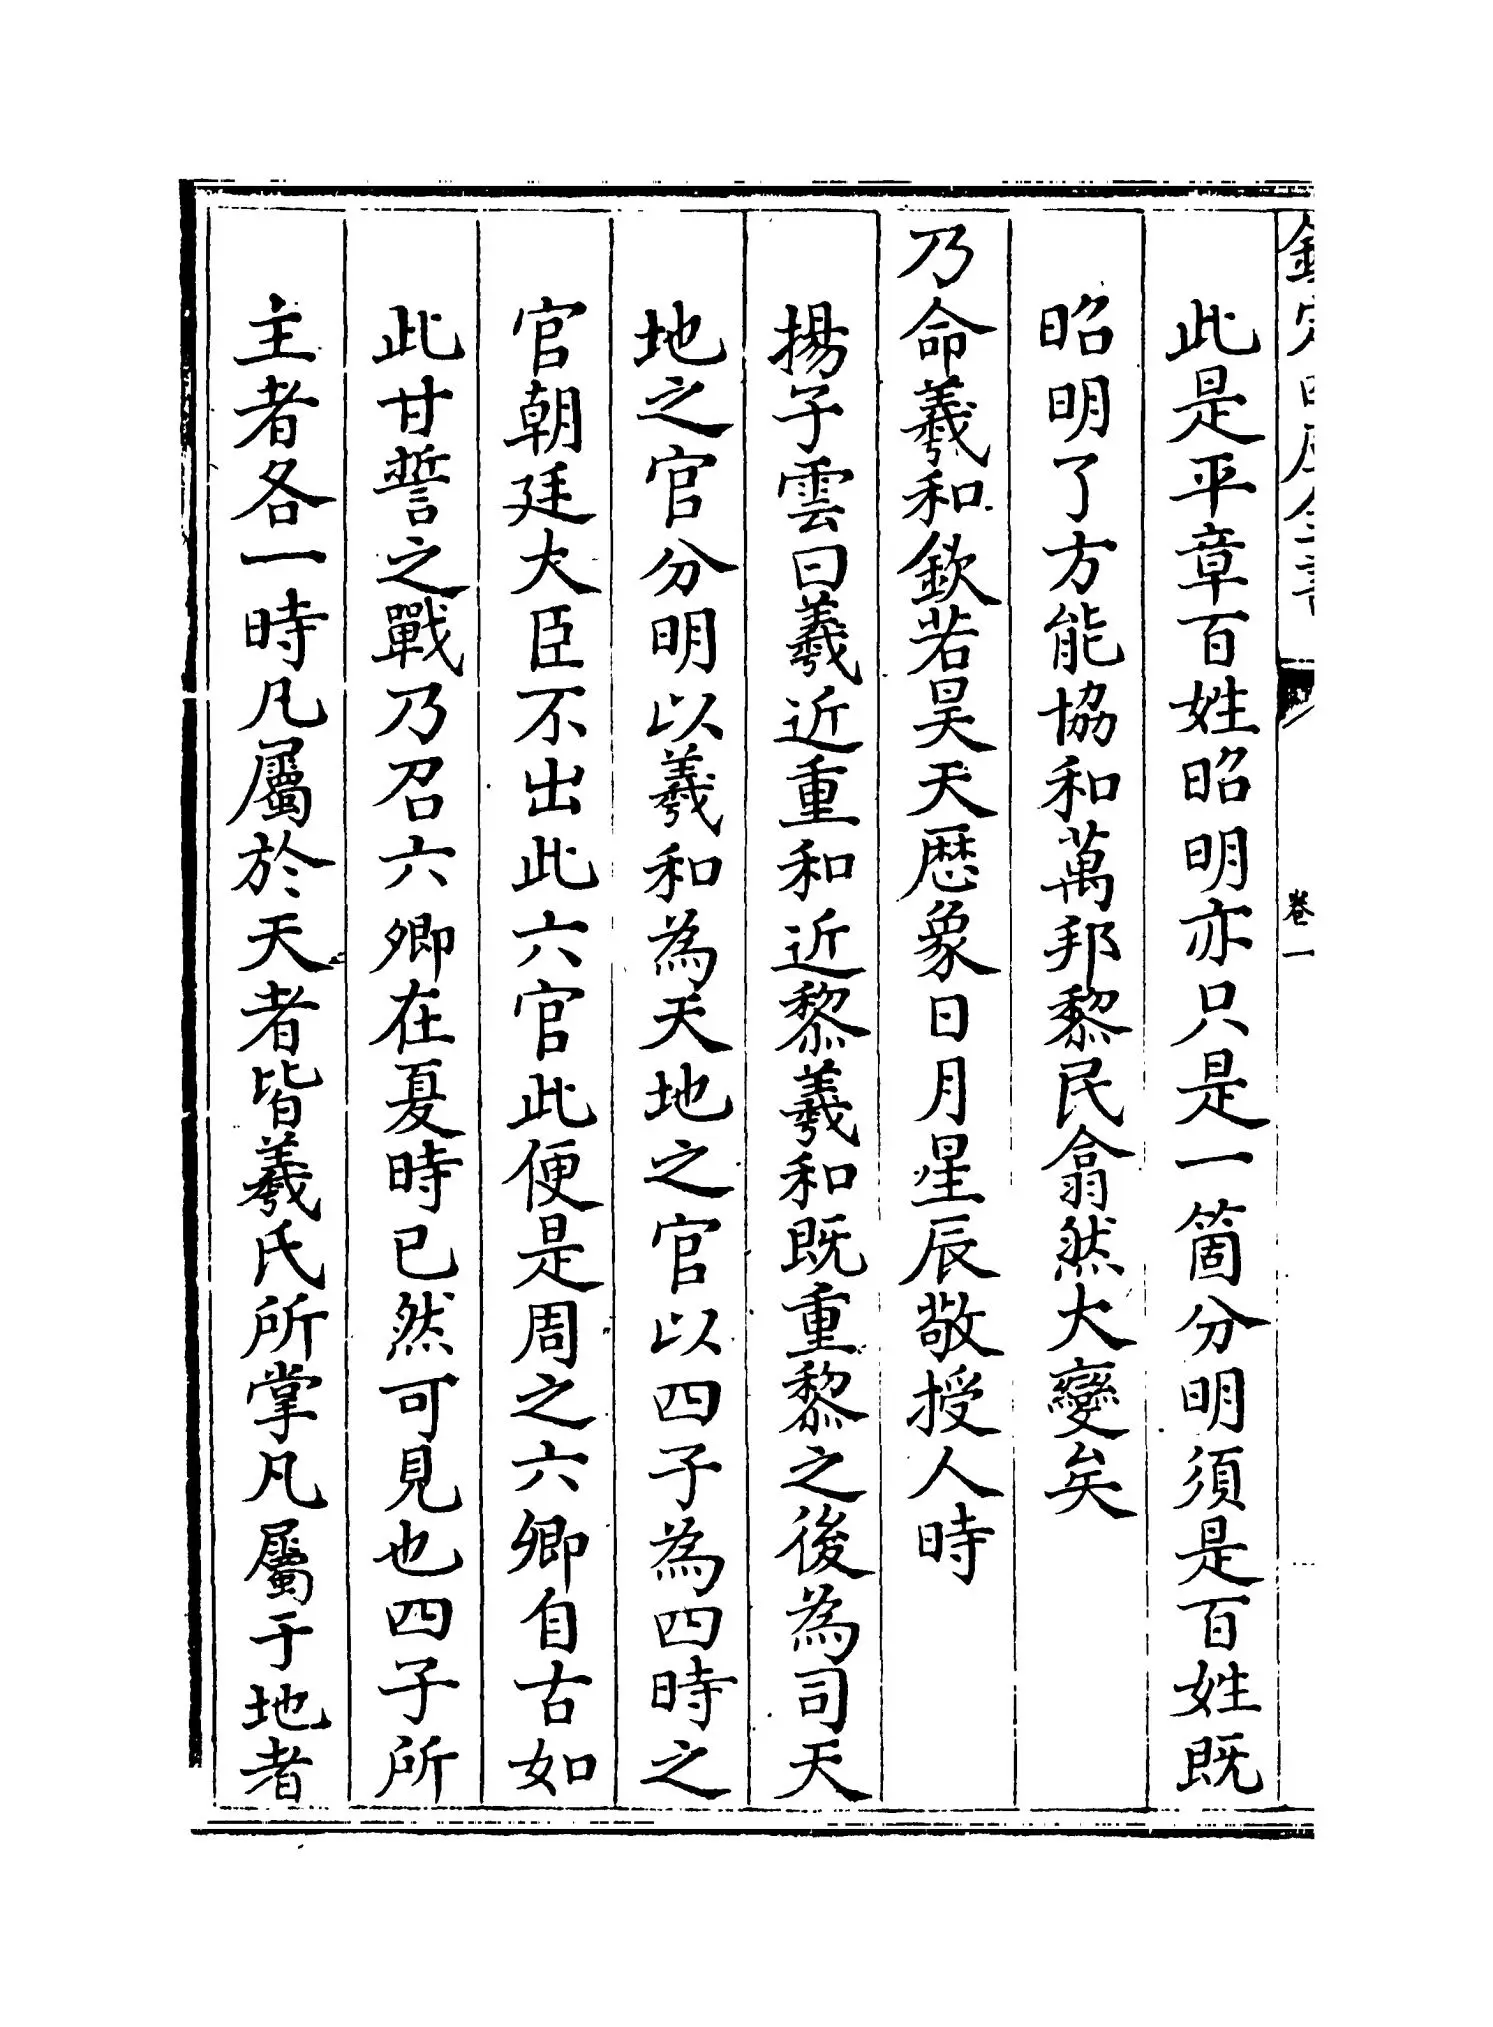 此是平章百姓昭明亦只是一箇分明須是百姓既
昭明了方能協和萬邦黎民翕然大變矣
乃命羲和欽若昊天厯象日月星辰敬授人時
揚子雲曰羲近重和近黎羲和既重黎之後為司天
地之官分明以羲和為天地之官以四子為四時之
官朝廷大臣不出此六官此便是周之六卿自古如
此甘誓之戰乃召六卿在夏時已然可見也四子所
主者各一時凡屬於天者皆羲氏所掌凡屬于地者
卷一